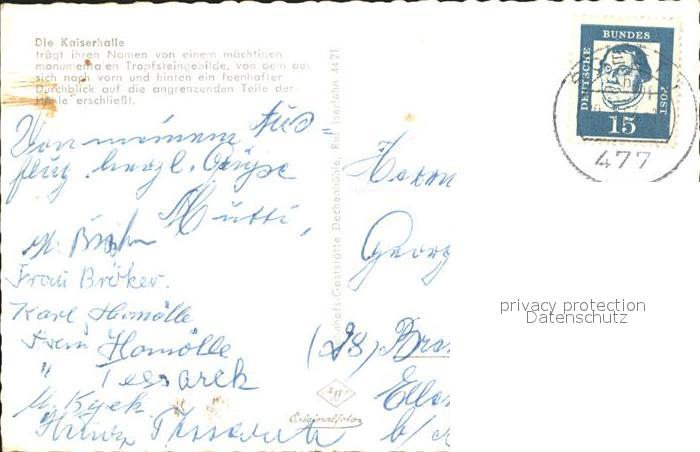 Die Kaiserhalle
trägt ihren Namen von einem mächtigen
monumentalen Tropfsteingebilde, von dem aus
sich nach vorn und hinten ein feenhafter
Durchblick auf die angrenzenden Teile der
Höhle erschließt.
Von meinem Aus=
flug herzl. Grüße
Mutti,
Frau Bröker.
Karl Homölle
Frau Homölle
" Tessarek
Heinz
nhofs-Gaststätte Dechenhöhle, Ruf Iserlohn 4421
Originalfoto
Herrn
Georg
(28) Bre
Elle
b/
DEUTSCHE
BUNDES
POST
15
477
privacy protection
Datenschutz